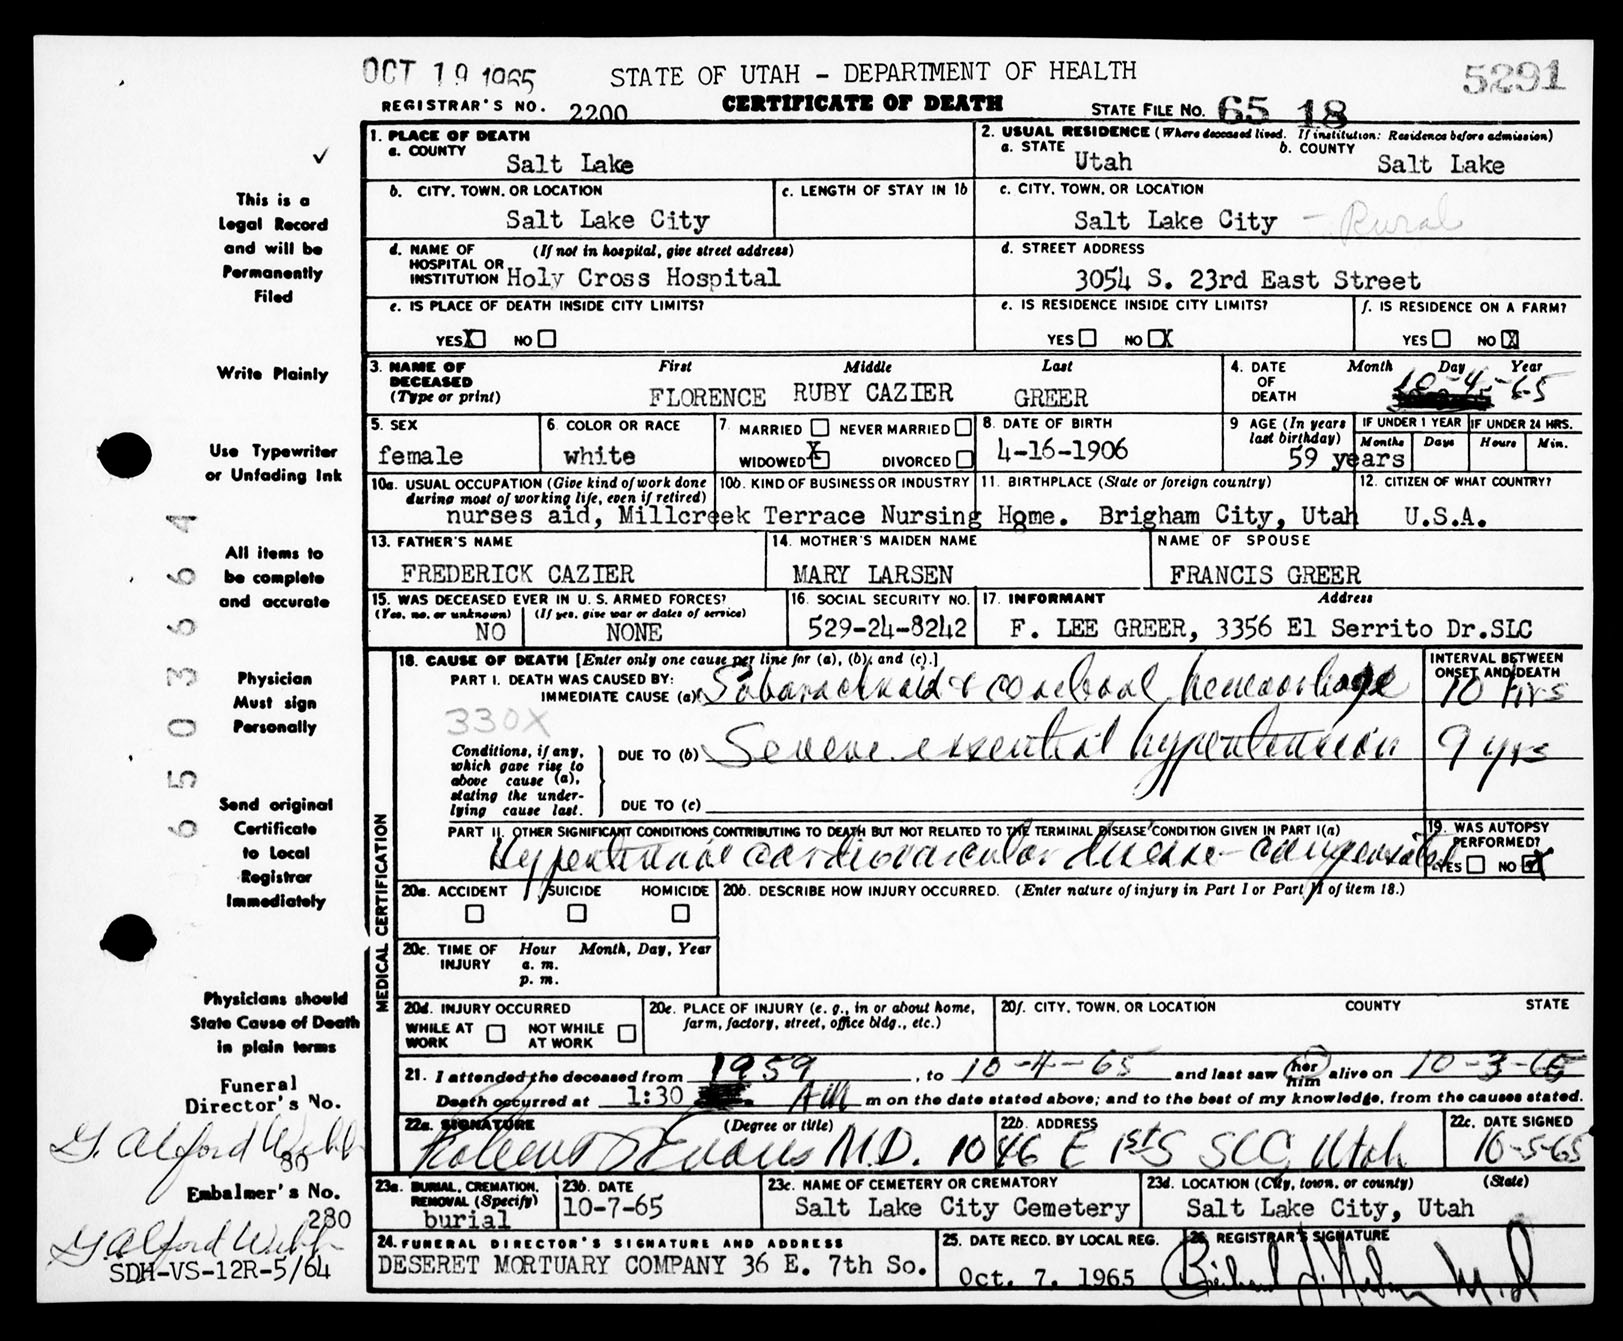 OCT 19 1965 STATE OF UTAH - DEPARTMENT OF HEALTH 5291
REGISTRAR'S NO. 2200 CERTIFICATE OF DEATH STATE FILE NO. 65 18
1. PLACE OF DEATH
a. COUNTY
Salt Lake
2. USUAL RESIDENCE (Where deceased lived. If institution: Residence before admission)
a. STATE Utah b. COUNTY Salt Lake
b. CITY, TOWN, OR LOCATION
Salt Lake City
c. LENGTH OF STAY IN 1b
c. CITY, TOWN, OR LOCATION
Salt Lake City - Rural
d. NAME OF HOSPITAL OR INSTITUTION (If not in hospital, give street address)
Holy Cross Hospital
d. STREET ADDRESS
3054 S. 23rd East Street
e. IS PLACE OF DEATH INSIDE CITY LIMITS?
YES X NO
e. IS RESIDENCE INSIDE CITY LIMITS?
YES NO X
f. IS RESIDENCE ON A FARM?
YES NO X
3. NAME OF DECEASED (Type or print)
First Middle Last
FLORENCE RUBY CAZIER GREER
4. DATE OF DEATH Month Day Year
10-4-65
5. SEX
female
6. COLOR OR RACE
white
7. MARRIED NEVER MARRIED
WIDOWED X DIVORCED
8. DATE OF BIRTH
4-16-1906
9 AGE (In years last birthday)
59 years
IF UNDER 1 YEAR IF UNDER 24 HRS.
Months Days Hours Min.
10a. USUAL OCCUPATION (Give kind of work done during most of working life, even if retired)
10b. KIND OF BUSINESS OR INDUSTRY
nurses aid, Millcreek Terrace Nursing Home.
11. BIRTHPLACE (State or foreign country)
Brigham City, Utah
12. CITIZEN OF WHAT COUNTRY?
U.S.A.
13. FATHER'S NAME
FREDERICK CAZIER
14. MOTHER'S MAIDEN NAME
MARY LARSEN
NAME OF SPOUSE
FRANCIS GREER
15. WAS DECEASED EVER IN U.S. ARMED FORCES?
(Yes, no, or unknown) (If yes, give war or dates of service)
NO NONE
16. SOCIAL SECURITY NO.
529-24-8242
17. INFORMANT Address
F. LEE GREER, 3356 El Serrito Dr.SLC
MEDICAL CERTIFICATION
18. CAUSE OF DEATH [Enter only one cause per line for (a), (b), and (c).]
PART I. DEATH WAS CAUSED BY:
IMMEDIATE CAUSE (a) Subarachnoid & cerebral hemorrhage
INTERVAL BETWEEN ONSET AND DEATH
10 hrs
330X
Conditions, if any, which gave rise to above cause (a), stating the underlying cause last.
DUE TO (b) Severe essential hypertension 9 yrs
DUE TO (c)
PART II. OTHER SIGNIFICANT CONDITIONS CONTRIBUTING TO DEATH BUT NOT RELATED TO THE TERMINAL DISEASE CONDITION GIVEN IN PART I(a)
Hypertensive cardiovascular disease - compensated
19. WAS AUTOPSY PERFORMED?
YES NO X
20a. ACCIDENT SUICIDE HOMICIDE
20b. DESCRIBE HOW INJURY OCCURRED. (Enter nature of injury in Part I or Part II of item 18.)
20c. TIME OF INJURY Hour Month, Day, Year
a. m.
p. m.
20d. INJURY OCCURRED
WHILE AT WORK NOT WHILE AT WORK
20e. PLACE OF INJURY (e. g., in or about home, farm, factory, street, office bldg., etc.)
20f. CITY, TOWN, OR LOCATION COUNTY STATE
21. I attended the deceased from 1959, to 10-4-65 and last saw her him alive on 10-3-65
Death occurred at 1:30 AM m on the date stated above; and to the best of my knowledge, from the causes stated.
22a. SIGNATURE (Degree or title)
Robert S Evans M.D.
22b. ADDRESS
1046 E 1st S SLC, Utah
22c. DATE SIGNED
10-5-65
23a. BURIAL, CREMATION, REMOVAL (Specify)
burial
23b. DATE
10-7-65
23c. NAME OF CEMETERY OR CREMATORY
Salt Lake City Cemetery
23d. LOCATION (City, town, or county) (State)
Salt Lake City, Utah
24. FUNERAL DIRECTOR'S SIGNATURE AND ADDRESS
DESERET MORTUARY COMPANY 36 E. 7th So.
25. DATE RECD. BY LOCAL REG.
Oct. 7, 1965
26. REGISTRAR'S SIGNATURE
This is a
Legal Record
and will be
Permanently
Filed
Write Plainly
Use Typewriter
or Unfading Ink
All items to
be complete
and accurate
Physician
Must sign
Personally
Send original
Certificate
to Local
Registrar
Immediately
Physicians should
State Cause of Death
in plain terms
Funeral
Director's No.
G. Alford Webb
80
Embalmer's No.
280
G. Alford Webb
SDH-VS-12R-5/64
650 3664